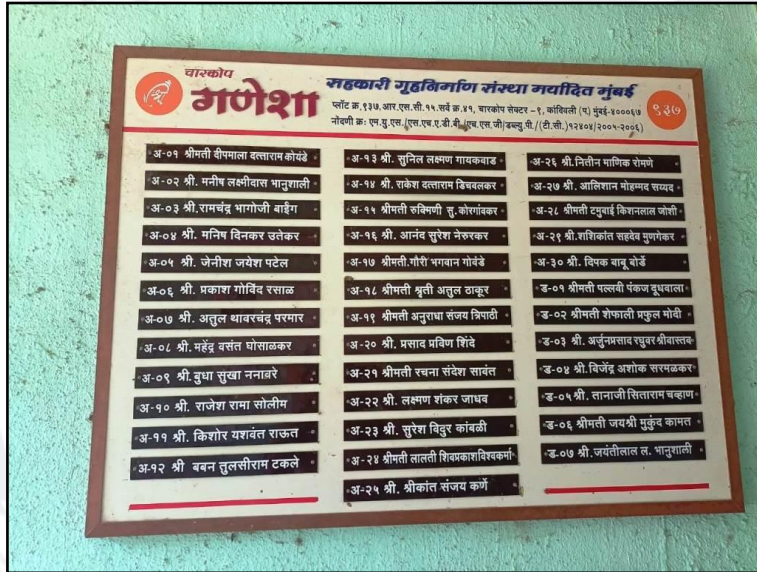 चारकोप
गणेशा
सहकारी गृहनिर्माण संस्था मर्यादित मुंबई
प्लॉट क्र.९३७, आर.एस.सी.१५.सर्वे क्र.४१, चारकोप सेक्टर - ९, कांदिवली (प) मुंबई-४०००६७
नोदणी क्रः एम.यु.एस./एस.एच.ए.डी.बी./एच.एस.जी/डब्ल्यु.पी./(टी.सी.)१२४०४/२००५-२००६)
९३७
श्री
अ-०१ श्रीमती दीपमाला दत्ताराम कोयंडे
अ-०२ श्री. मनीष लक्ष्मीदास भानुशाली
अ-०३ श्री.रामचंद्र भागोजी बाईंग
अ-०४ श्री. मनिष दिनकर उतेकर
अ-०५ श्री. जेनीश जयेश पटेल
अ-०६ श्री. प्रकाश गोविंद रसाळ
अ-०७ श्री. अतुल थावरचंद्र परमार
अ-०८ श्री. महेंद्र वसंत घोसाळकर
अ-०९ श्री. बुधा सुखा ननावरे
अ-१० श्री. राजेश रामा सोलीम
अ-११ श्री. किशोर यशवंत राऊत
अ-१२ श्री बबन तुलसीराम टकले
अ-१३ श्री. सुनिल लक्ष्मण गायकवाड
अ-१४ श्री. राकेश दत्ताराम डिचवलकर
अ-१५ श्रीमती रुक्मिणी सु. कोरगांवकर
अ-१६ श्री. आनंद सुरेश नेरुरकर
अ-१७ श्रीमती.गौरी भगवान गोवंडे
अ-१८ श्रीमती श्रृती अतुल ठाकूर
अ-१९ श्रीमती अनुराधा संजय त्रिपाठी
अ-२० श्री. प्रसाद प्रविण शिंदे
अ-२१ श्रीमती रचना संदेश सावंत
अ-२२ श्री. लक्ष्मण शंकर जाधव
अ-२३ श्री. सुरेश विदुर कांबळी
अ-२४ श्रीमती लालती शिवप्रकाशविश्वकर्मा
अ-२५ श्री. श्रीकांत संजय कर्णे
अ-२६ श्री.नितीन माणिक रोमणे
अ-२७ श्री. आलिशान मोहम्मद सय्यद
अ-२८ श्रीमती टमुबाई किशनलाल जोशी
अ-२९ श्री.शशिकांत सहदेव मुणगेकर
अ-३० श्री. दिपक बाबू बोर्डे
ड-०१ श्रीमती पल्लवी पंकज दूधवाला
ड-०२ श्रीमती शेफाली प्रफुल मोदी
ड-०३ श्री. अर्जुनप्रसाद रघुवर श्रीवास्तव
ड-०४ श्री. विजेंद्र अशोक सरमळकर
ड-०५ श्री. तानाजी सिताराम चव्हाण
ड-०६ श्रीमती जयश्री मुकुंद कामत
ड-०७ श्री.जयंतीलाल ल. भानुशाली